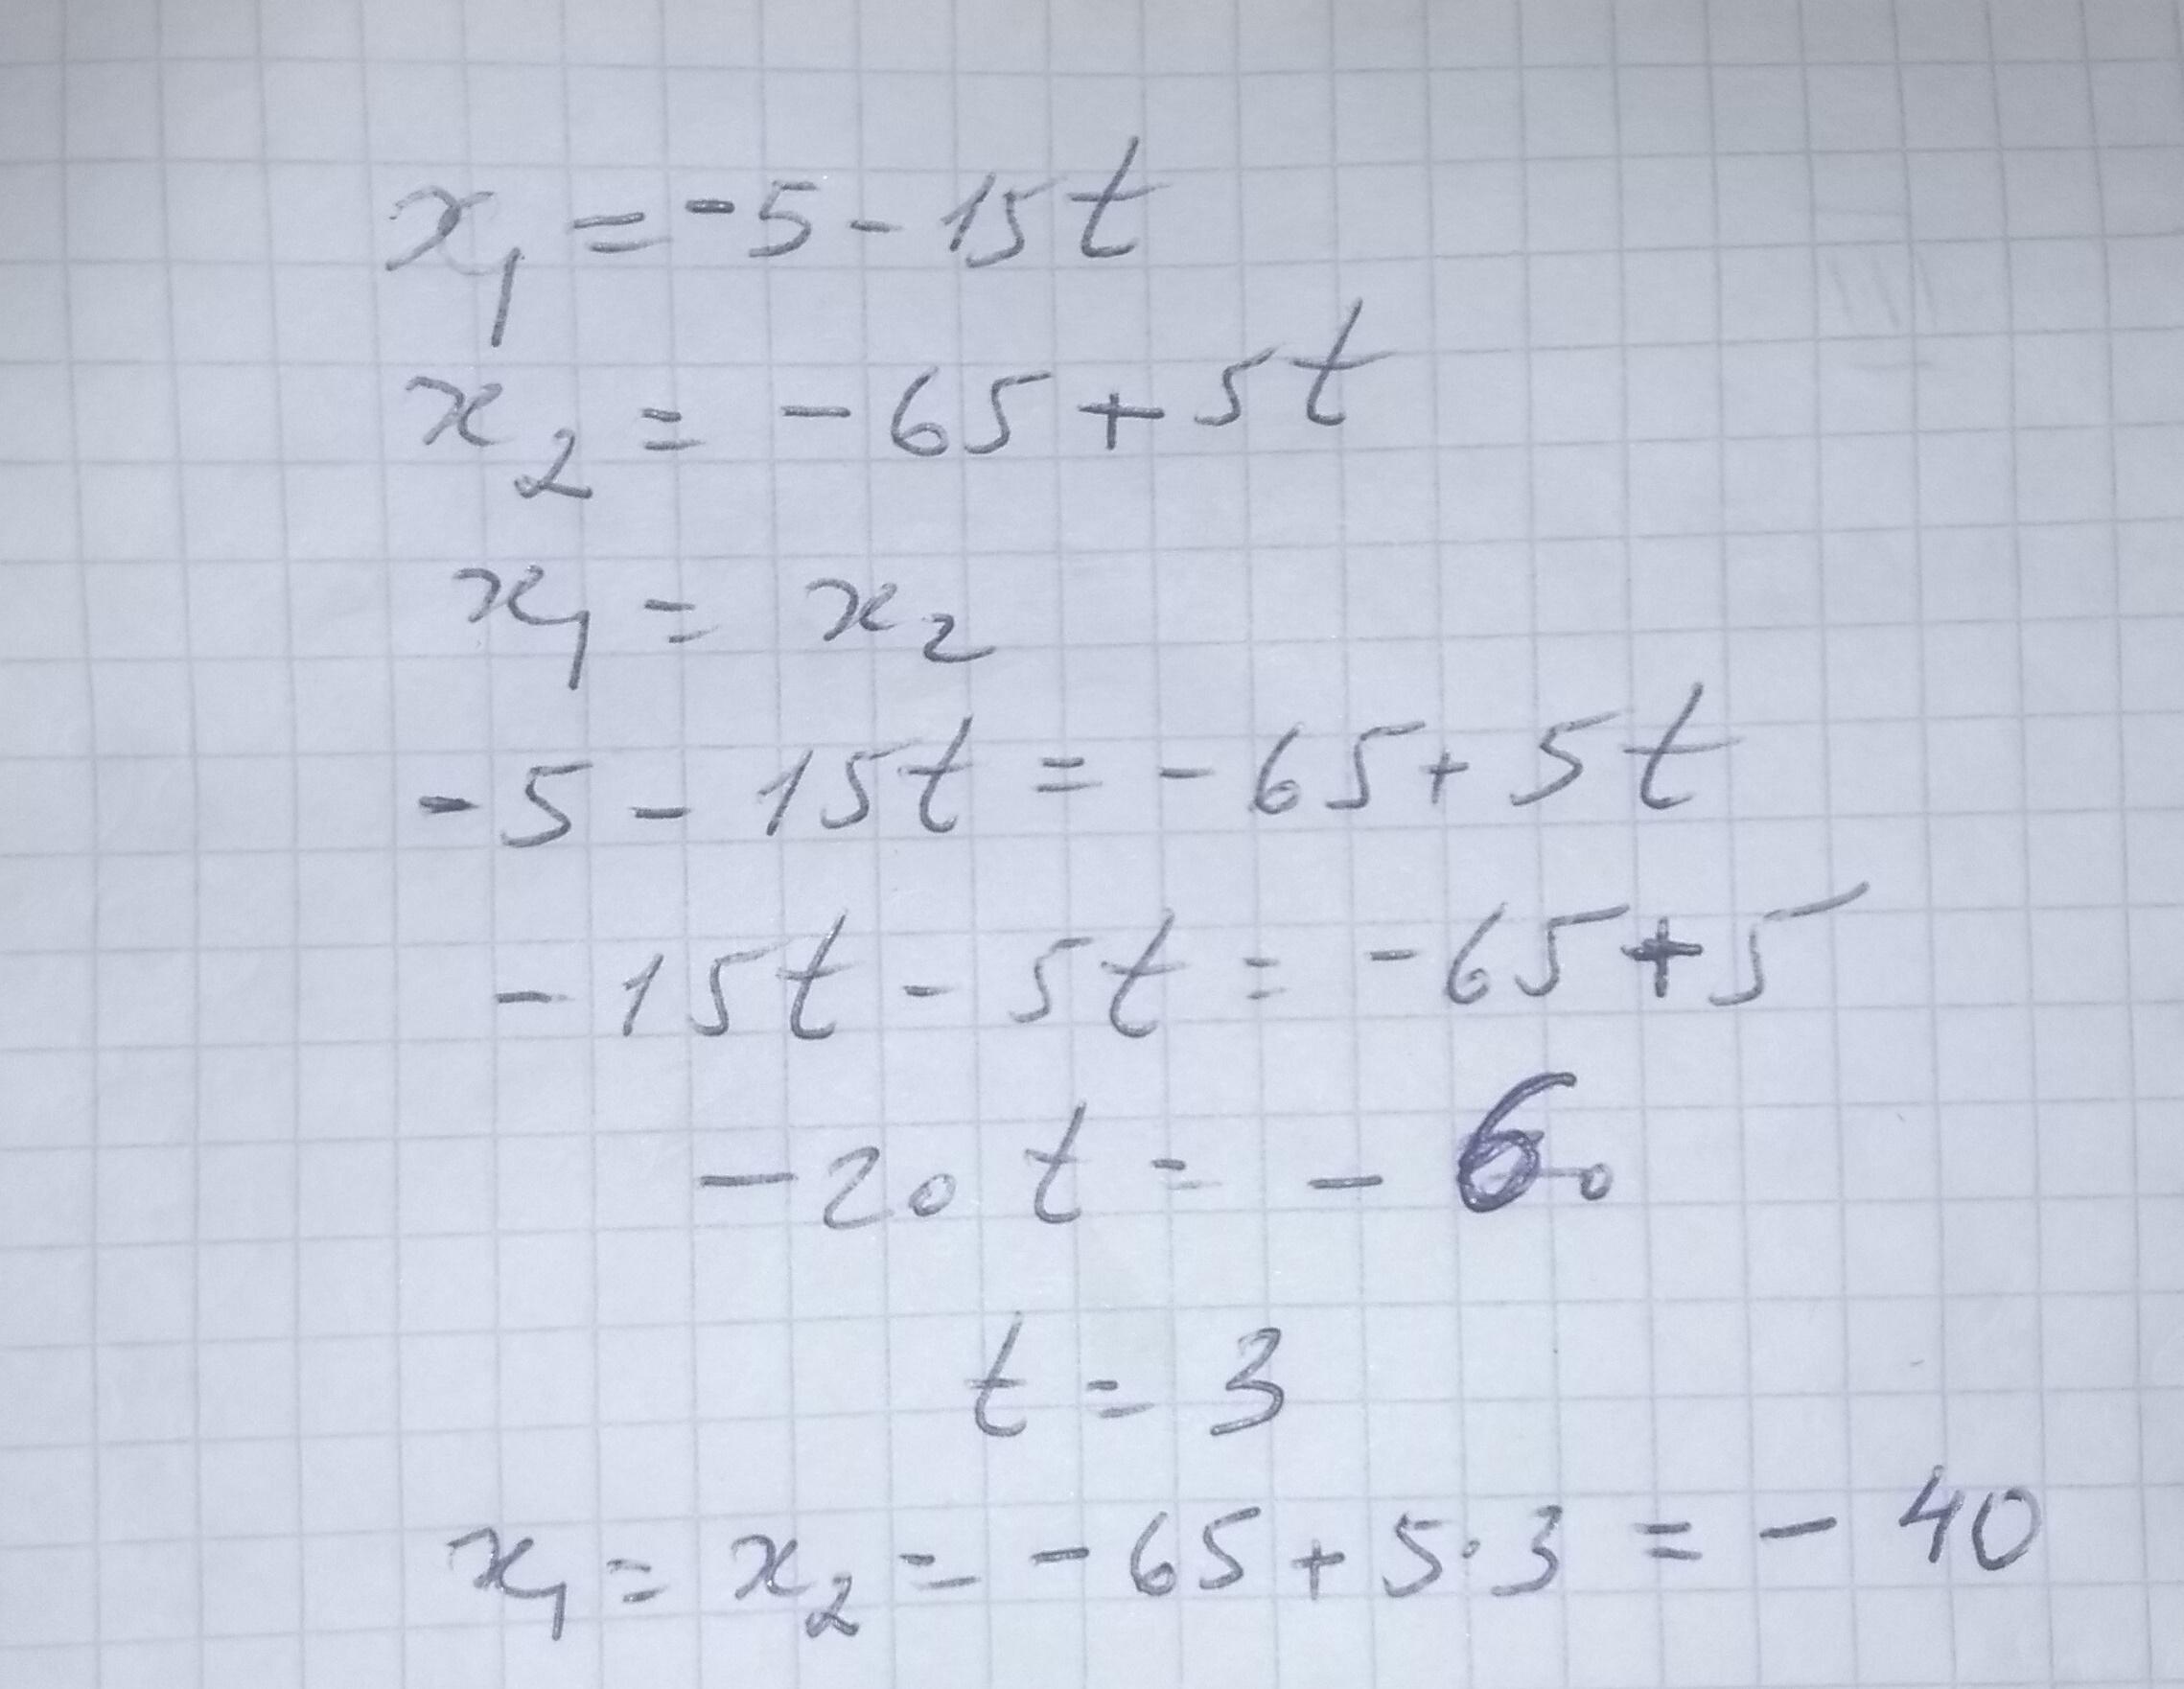 x₁ = -5 - 15t
x₂ = - 65 + 5t
x₁ = x₂
-5 - 15t = - 65 + 5t
- 15t - 5t = - 65 + 5
- 20t = - 60
t = 3
x₁ = x₂ = - 65 + 5·3 = - 40